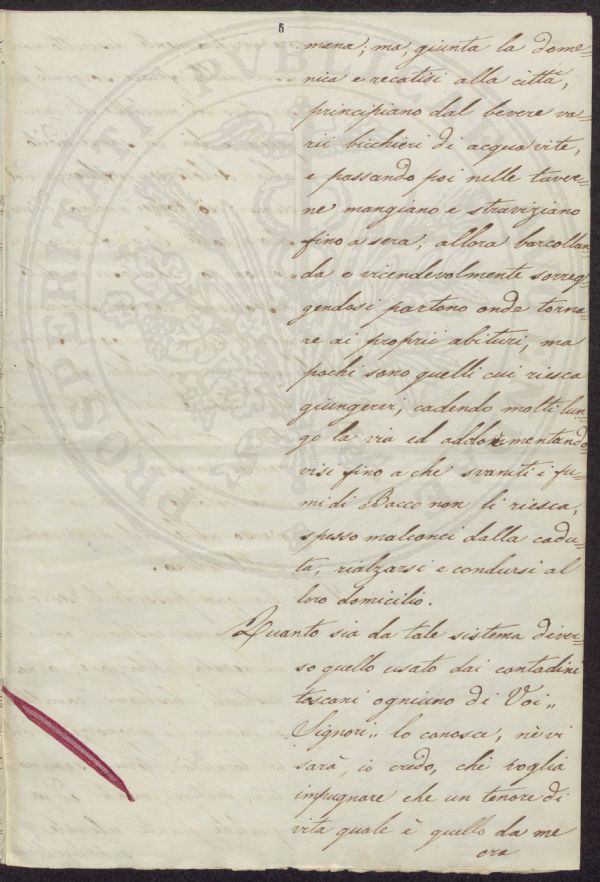 5
mana; ma, giunta la dome=
nica e recatisi alla città,
principiano dal bevere va=
rii bicchieri di acqua vite,
e passando poi nelle taver=
ne mangiano e straviziano
fino a sera; allora barcollan=
do e vicendevolmente sorreg=
gendosi partono onde torna=
re ai proprii abituri, ma
pochi sono quelli cui riesca
giungervi, cadendo molti lun=
go la via ed addormentando
visi fino a che svaniti i fu=
mi di Bacco non li riesca,
spesso malconci dalla cadu=
ta, rialzarsi e condursi al
loro domicilio.
Quanto sia da tale sistema diver=
so quello usato dai contadini
toscani ogniuno di Voi,,
Signori,, lo conosce, nè vi
sarà, io credo, chi voglia
impugnare che un tenore di
vita quale è quello da me
ora
PROSPERITATI PUBLICAE